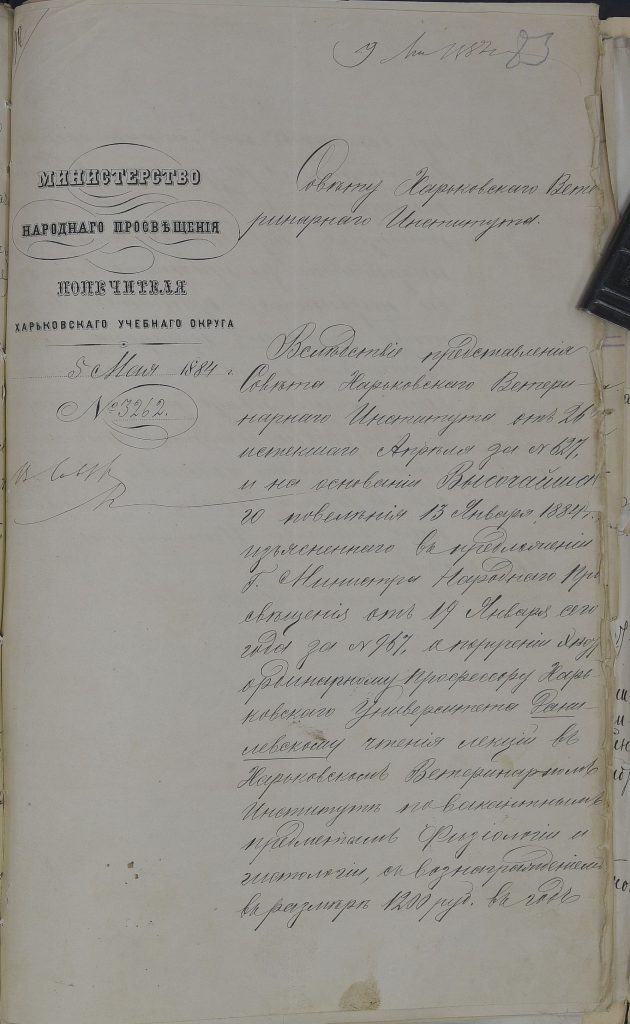 9 Мая 1884 г.
83
МИНИСТЕРСТВО
НАРОДНАГО ПРОСВѢЩЕНІЯ
ПОПЕЧИТЕЛЯ
ХАРЬКОВСКАГО УЧЕБНАГО ОКРУГА
5 Мая 1884 г.
№ 3262.
Совѣту Харьковскаго Вете-
ринарнаго Института.
Вслѣдствіе представленія
Совѣта Харьковскаго Ветери-
нарнаго Института отъ 26
истекшаго Апрѣля за № 627,
и на основаніи Высочайша-
го повелѣнія 13 Января 1884 г.
изъясненнаго въ предложеніи
Г. Министра Народнаго Про-
свѣщенія отъ 19 Января сего
года за № 967, о порученіи
ординарному профессору Харь-
ковскаго Университета Дани-
левскому чтенія лекцій въ
Харьковскомъ Ветеринарномъ
Институтѣ по вакантнымъ
предметамъ Физіологіи и
гистологіи, съ вознагражденіемъ
въ размѣрѣ 1200 руб. въ годъ